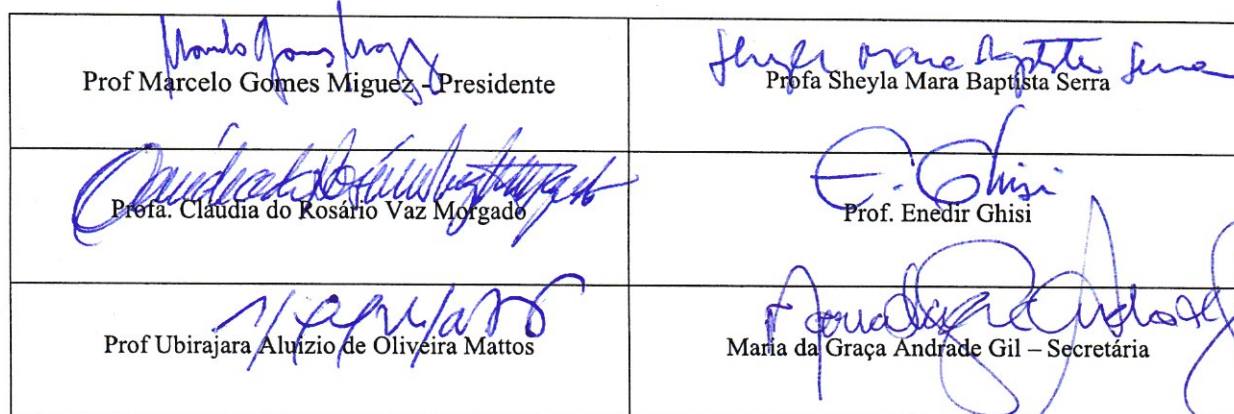 Prof Marcelo Gomes Miguez - Presidente
Sheyla Mara Baptista Serra
Profa Sheyla Mara Baptista Serra
Profa. Cláudia do Rosário Vaz Morgado
E. Ghisi
Prof. Enedir Ghisi
Prof Ubirajara Aluizio de Oliveira Mattos
Maria da Graça Andrade Gil – Secretária